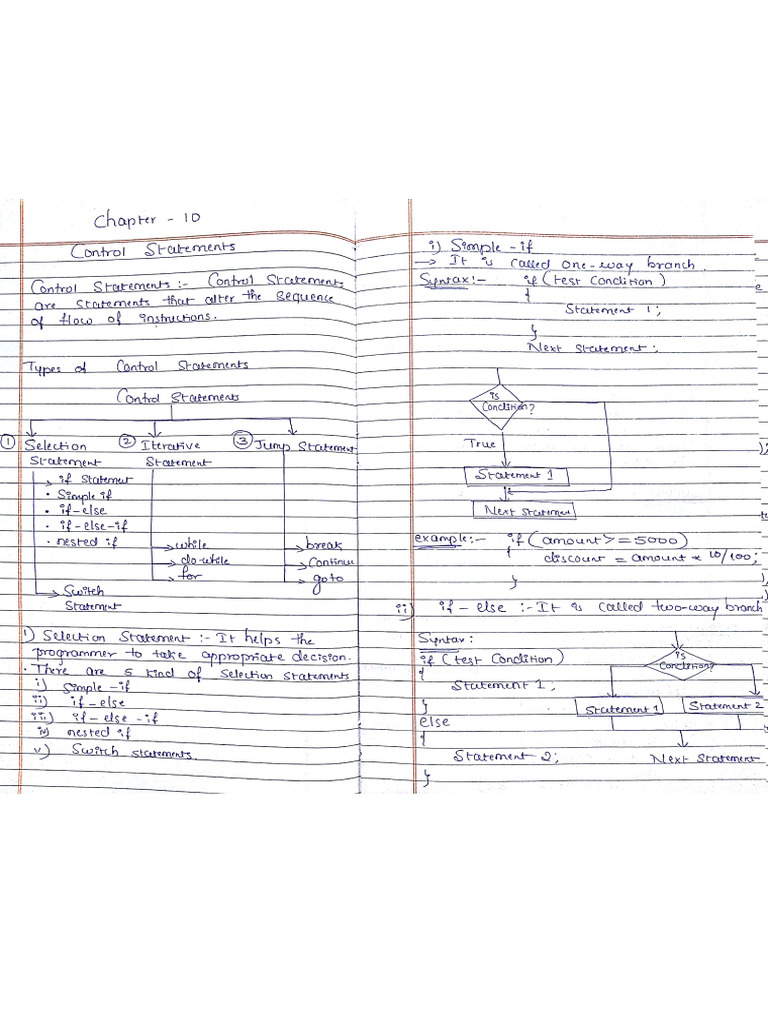 Chapter - 10
Control Statements
Control Statements :- Control Statements
are statements that alter the sequence
of flow of instructions.
Types of Control Statements
Control Statements
① Selection Statement
② Iterative Statement
③ Jump Statement
if Statement
• Simple if
• if-else
• if-else-if
• nested if
Switch
Statement
while
do-while
for
break
Continue
goto
1) Selection Statement :- It helps the
programmer to take appropriate decision.
• There are 5 kind of Selection Statements
i) Simple -if
ii) if-else
iii) if-else-if
iv) nested if
v) Switch statements.
i) Simple -if
→ It is called one-way branch.
Syntax:- if (test condition)
{
Statement 1;
}
Next statement;
is
Condition?
True
Statement 1
Next Statement
example:- if (amount >= 5000)
{
discount = amount * 10/100;
}
ii) if - else :- It is called two-way branch
Syntax:
if (test Condition)
{
Statement 1;
}
else
{
Statement 2;
}
is
Condition?
Statement 1
Statement 2
Next Statement